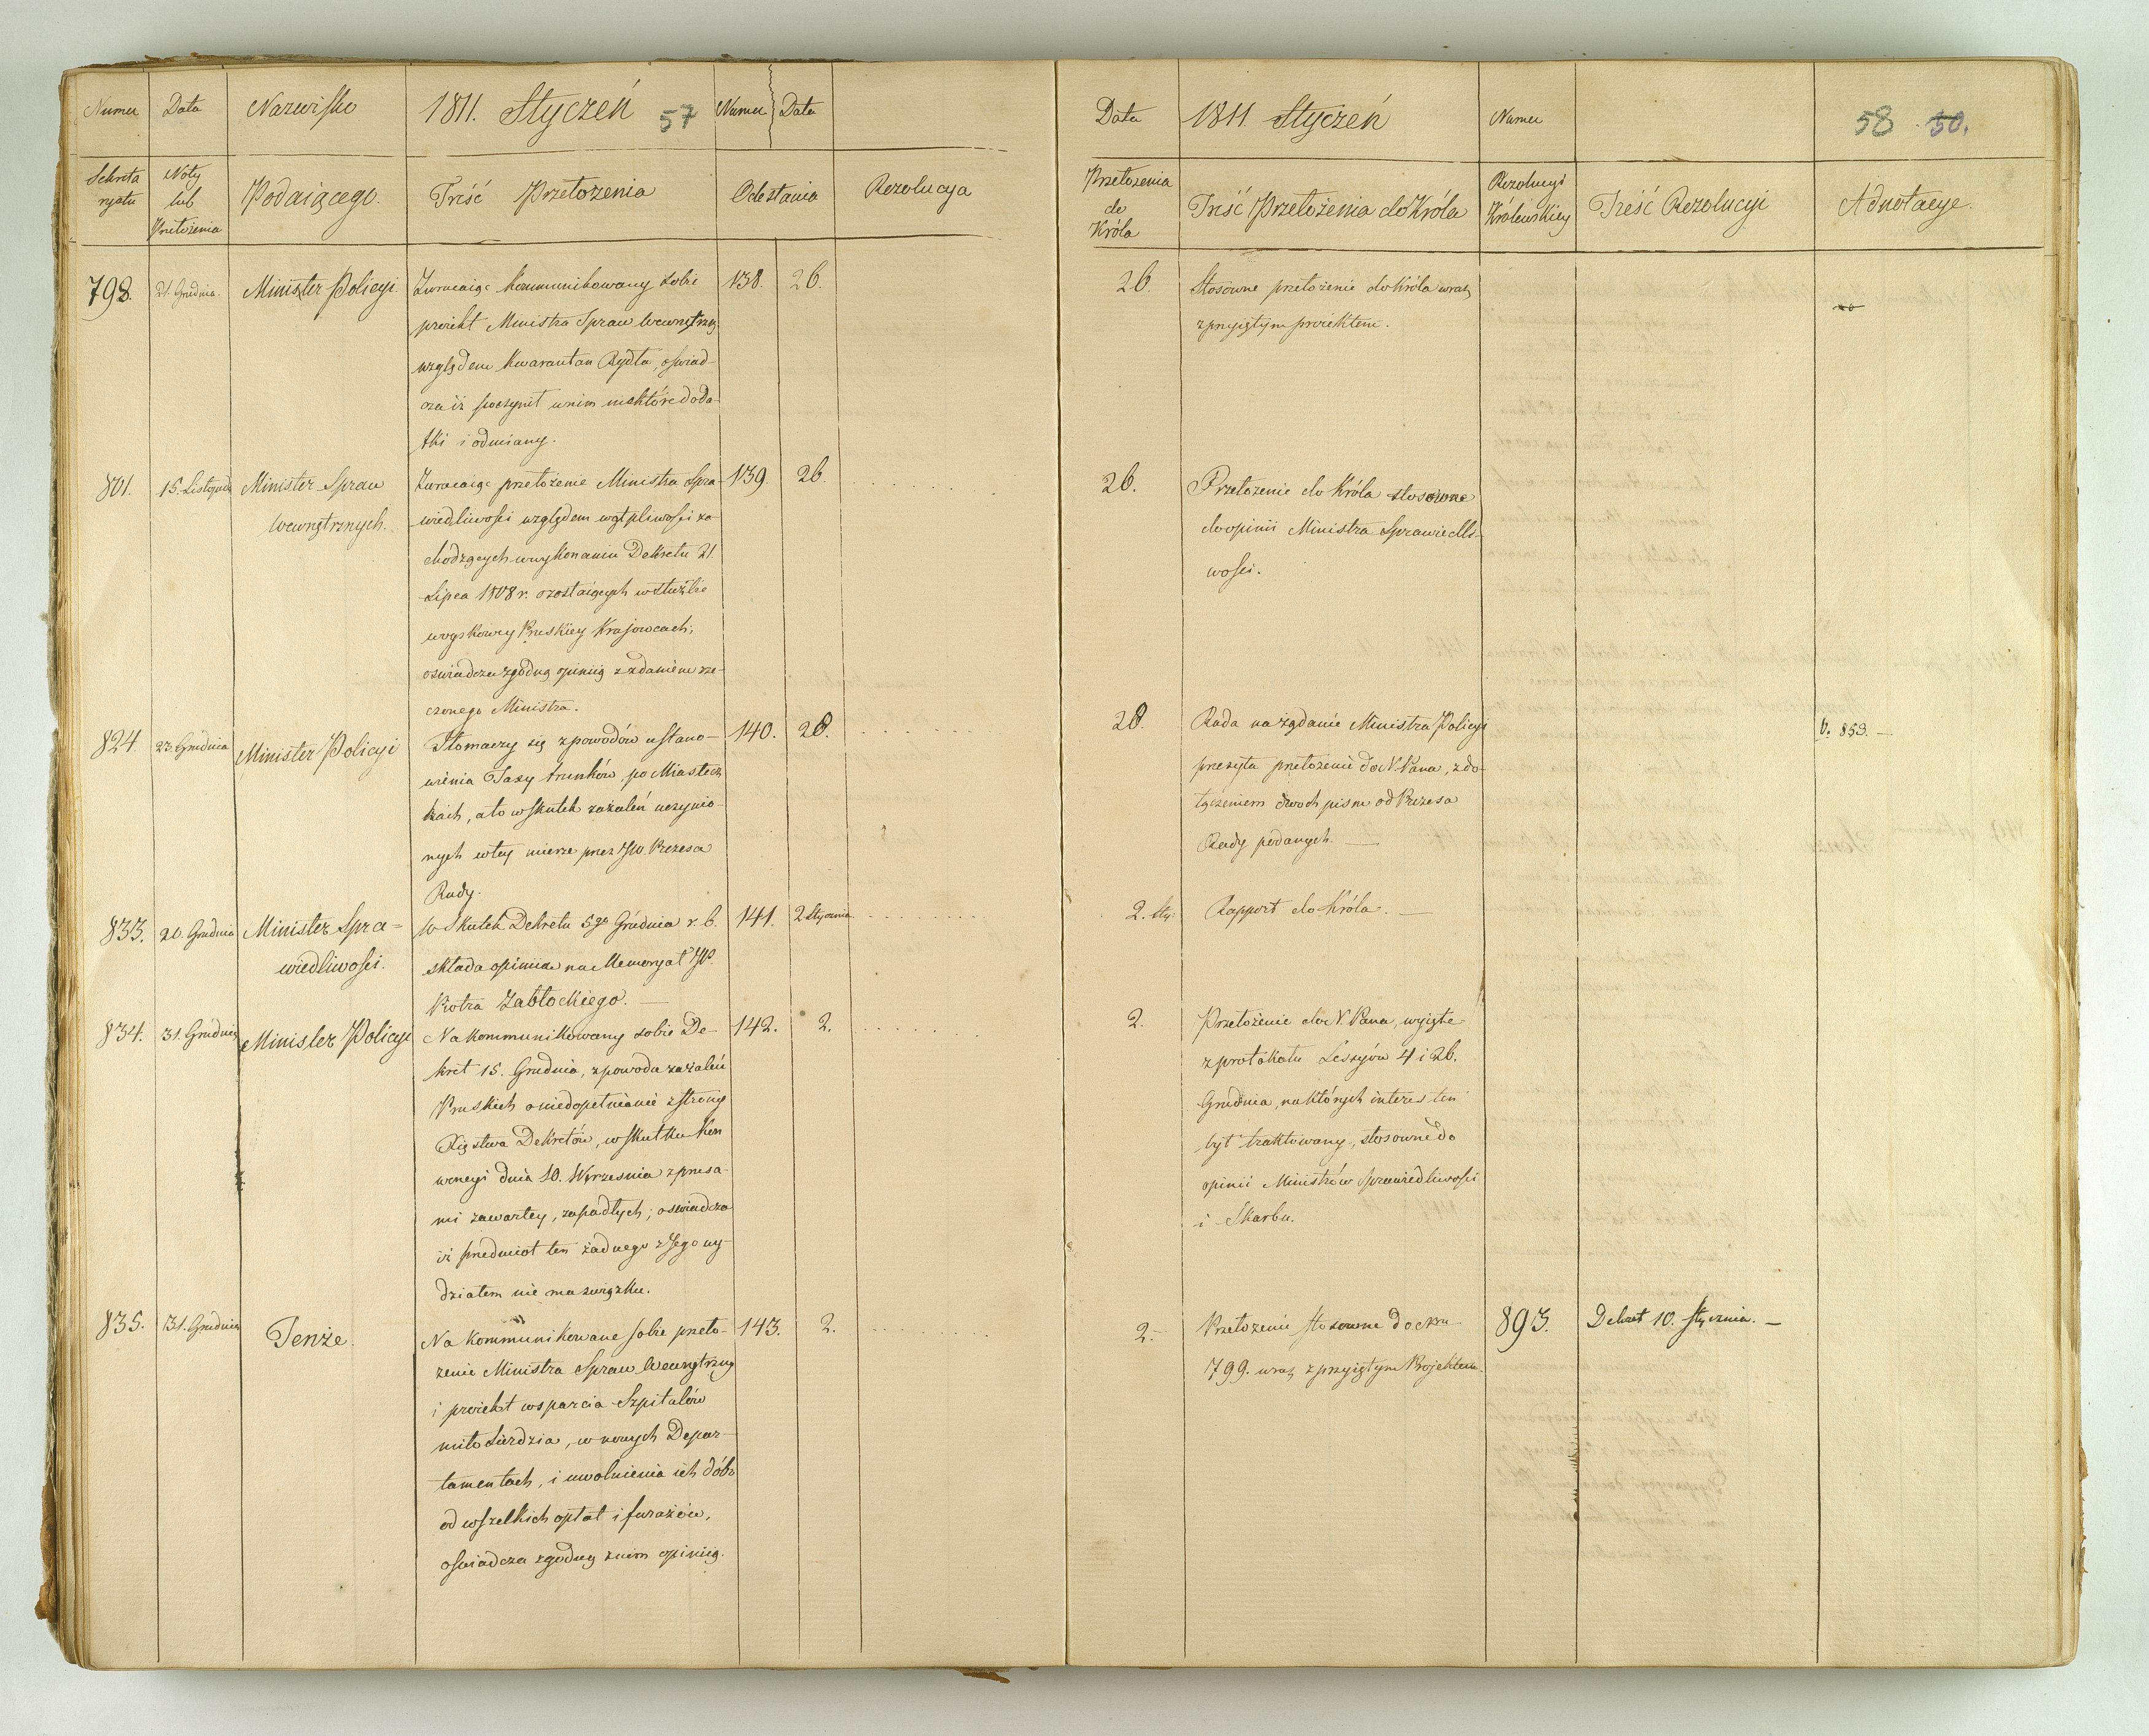 Numer Data Nazwisko 1811. Styczeń 57 Numer Data
Sekreta
ryatu
Noty
lub
Przełożenia
Podaiącego. Treść Przełożenia Odesłania Rezolucya
798. 21. Grudnia. Minister Policyi. Zwracaiąc kommunikowany sobie 138. 26.
proiekt Ministra Spraw wewnętrzny
względem kwarantan Bydła, oświad-
cza iż poczynił w nim niektóre doda-
tki i odmiany.
801. 15. Listopada Minister Spraw Zwracaiąc przełożenie Ministra Spra- 139. 26. . . . . . .
wewnętrznych. wiedliwości względem wątpliwości za-
chodzących w wykonaniu Dekretu 21
Lipca 1808 r. o zostaiących w służbie
woyskowey Pruskiey Krajowcach;
oświadcza zgodną opinią z zdaniem rze-
czonego Ministra.
824 22. Grudnia Minister Policyi Tłomaczy się z powodów ustano- 140. 28. . . . . . .
wienia Taxy trunków po Miastecz
kach, a to w skutek zażaleń uczynio-
nych w tey mierze przez JW. Prezesa
Rady.
833. 20. Grudnia Minister Spra= W skutek Dekretu 5go Grudnia r. b. 141. 2 Stycznia . . . . . . .
wiedliwości. składa opinią na Memoryał JP.
Piotra Zabłockiego. —
834. 31. Grudnia Minister Policyi Na kommunikowany sobie De- 142. 2. . . . . . .
kret 15. Grudnia, z powodu zażaleń
Pruskich o niedopełnianie z strony
Xięstwa Dekretów, w skutku Kon
wencyi dnia 10. Września z Prusa-
mi zawartey, zapadłych; oświadcza
iż przedmiot ten żadnego z Jego wy-
działem nie ma związku.
835. 31. Grudnia Tenże. Na kommunikowane sobie przeło- 143. 2. . . . . . . .
żenie Ministra Spraw Wewnętrzny
i proiekt wsparcia Szpitalów
miłosierdzia, w nowych Depar-
tamentach, i uwolnienia ich dóbr
od wszelkich opłat i furażów,
oświadcza zgodną z nim opinią.
Data 1811. Styczeń Numer 58 50.
Przełożenia
do
Króla
Treść Przełożenia do Króla
Rezolucyi
Królewskiey
Treść Rezolucyi Adnotacye.
26. Stosowne przełożenie do Króla wraz
z przyiętym proiektem.
26. Przełożenie do Króla stosowne
do opinii Ministra Sprawiedli-
wości.
28. Rada na żądanie Ministra Policyi v. 853. —
przesyła przełożenie do N. Pana, z do-
łączeniem dwoch pism od Prezesa
Rady podanych. —
2. Sty: Rapport do Króla. —
2. Przełożenie do N. Pana, wyięte
z protokołu Sessyów 4 i 26.
Grudnia, na których interes ten
był traktowany, stosowne do
opinii Ministrów Sprawiedliwości
i Skarbu.
2. — Przełożenie stosowne do Nru 893. Dekret 10. Stycznia. —
799. wraz z przyiętym Projektem.